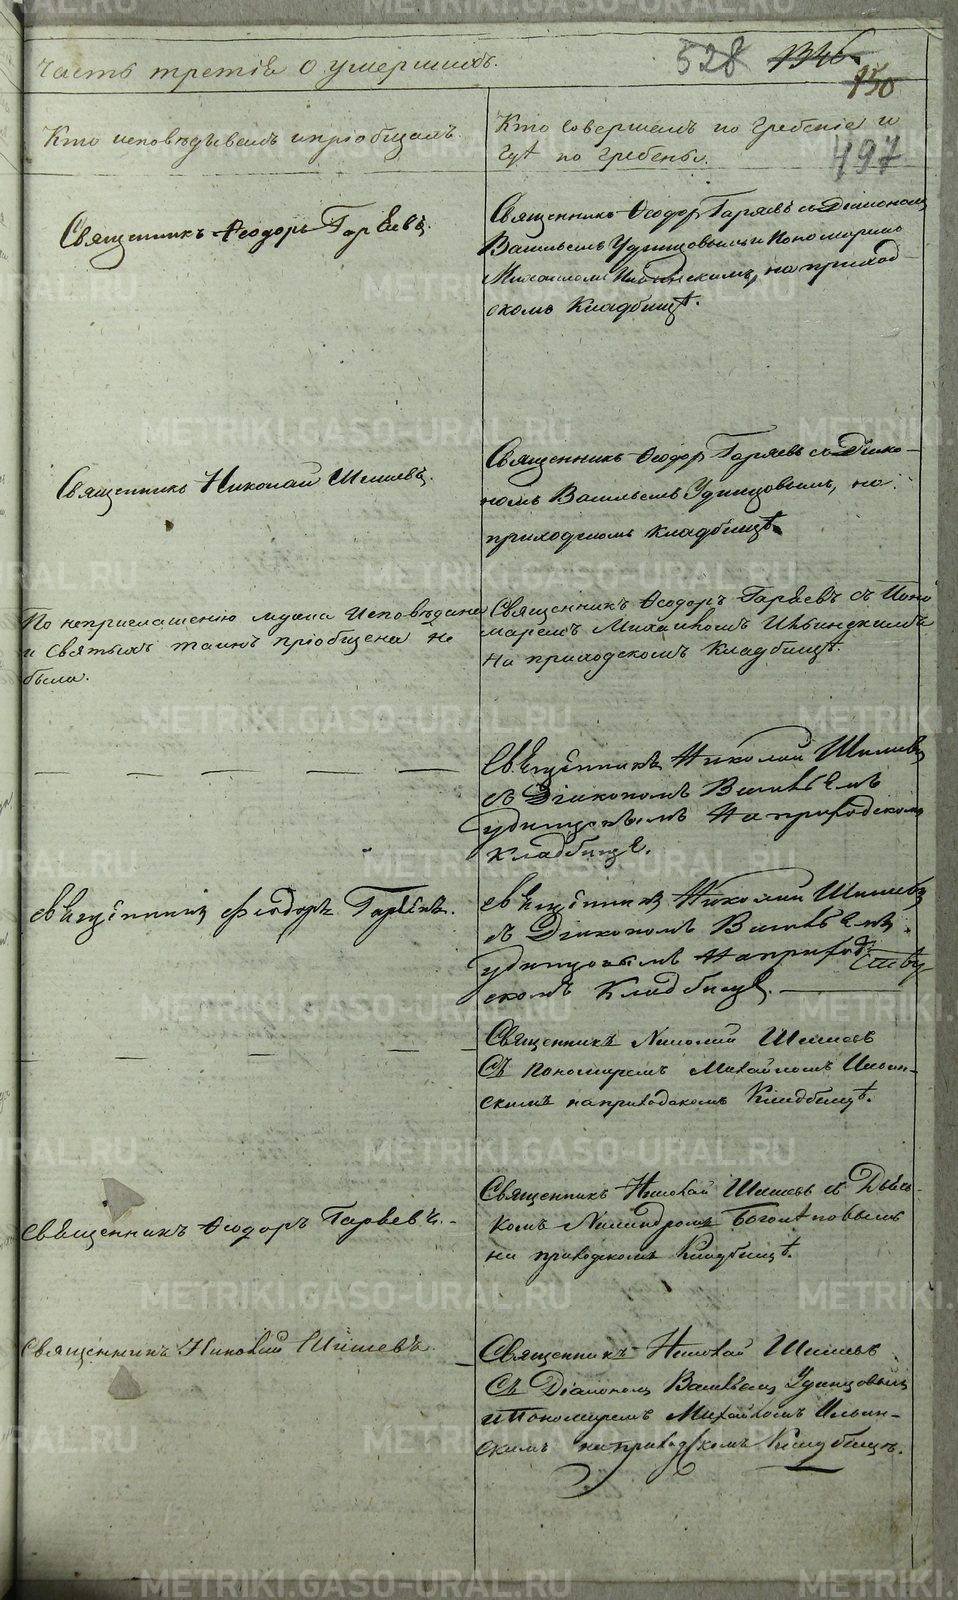 Часть третія о умершихъ.
528 1346.
150
497
Кто исповѣдывалъ и пріобщалъ.
Кто совершалъ погребеніе и
гдѣ погребены.
Священникъ Ѳеодоръ Гаряевъ.
Священникъ Ѳеодоръ Гаряевъ съ Діакономъ
Васильемъ Удинцовымъ и Пономаремъ
Михаиломъ Ильинскимъ, на приход-
скомъ Кладбищѣ.
Священникъ Николай Шишевъ.
Священникъ Ѳеодоръ Гаряевъ съ Діако-
номъ Васильемъ Удинцовымъ, на
приходскомъ кладбищѣ.
По неприглашению мужа Исповѣдана
и Святыхъ таинъ пріобщена не
была.
Священникъ Ѳеодоръ Гаряевъ съ Поно
маремъ Михаиломъ Ильинскимъ
на приходскомъ Кладбищѣ.
Священникъ Николай Шишевъ
съ Діакономъ Васильемъ
Удинцовымъ На приходскомъ
Кладбище.
Священникъ Феодоръ Гаряевъ.
Священникъ Николай Шишевъ
съ Діакономъ Васильемъ
Удинцовымъ На приход-
скомъ Кладбище.
Священникъ Николай Шишевъ
Съ Пономаремъ Михайломъ Ильин-
скимъ на приходскомъ Кладбищѣ.
Священникъ Ѳеодоръ Гаряевъ.
Священникъ Николай Шишевъ съ Дьяч-
комъ
на приходскомъ Кладбищѣ.
Священникъ Николай Шишевъ.
Священникъ Николай Шишевъ
Съ Діакономъ Васильемъ Удинцовымъ
и Пономаремъ Михайломъ Ильин-
скимъ на приходскомъ Кладбищѣ.
METRIKI.GASO-URAL.RU